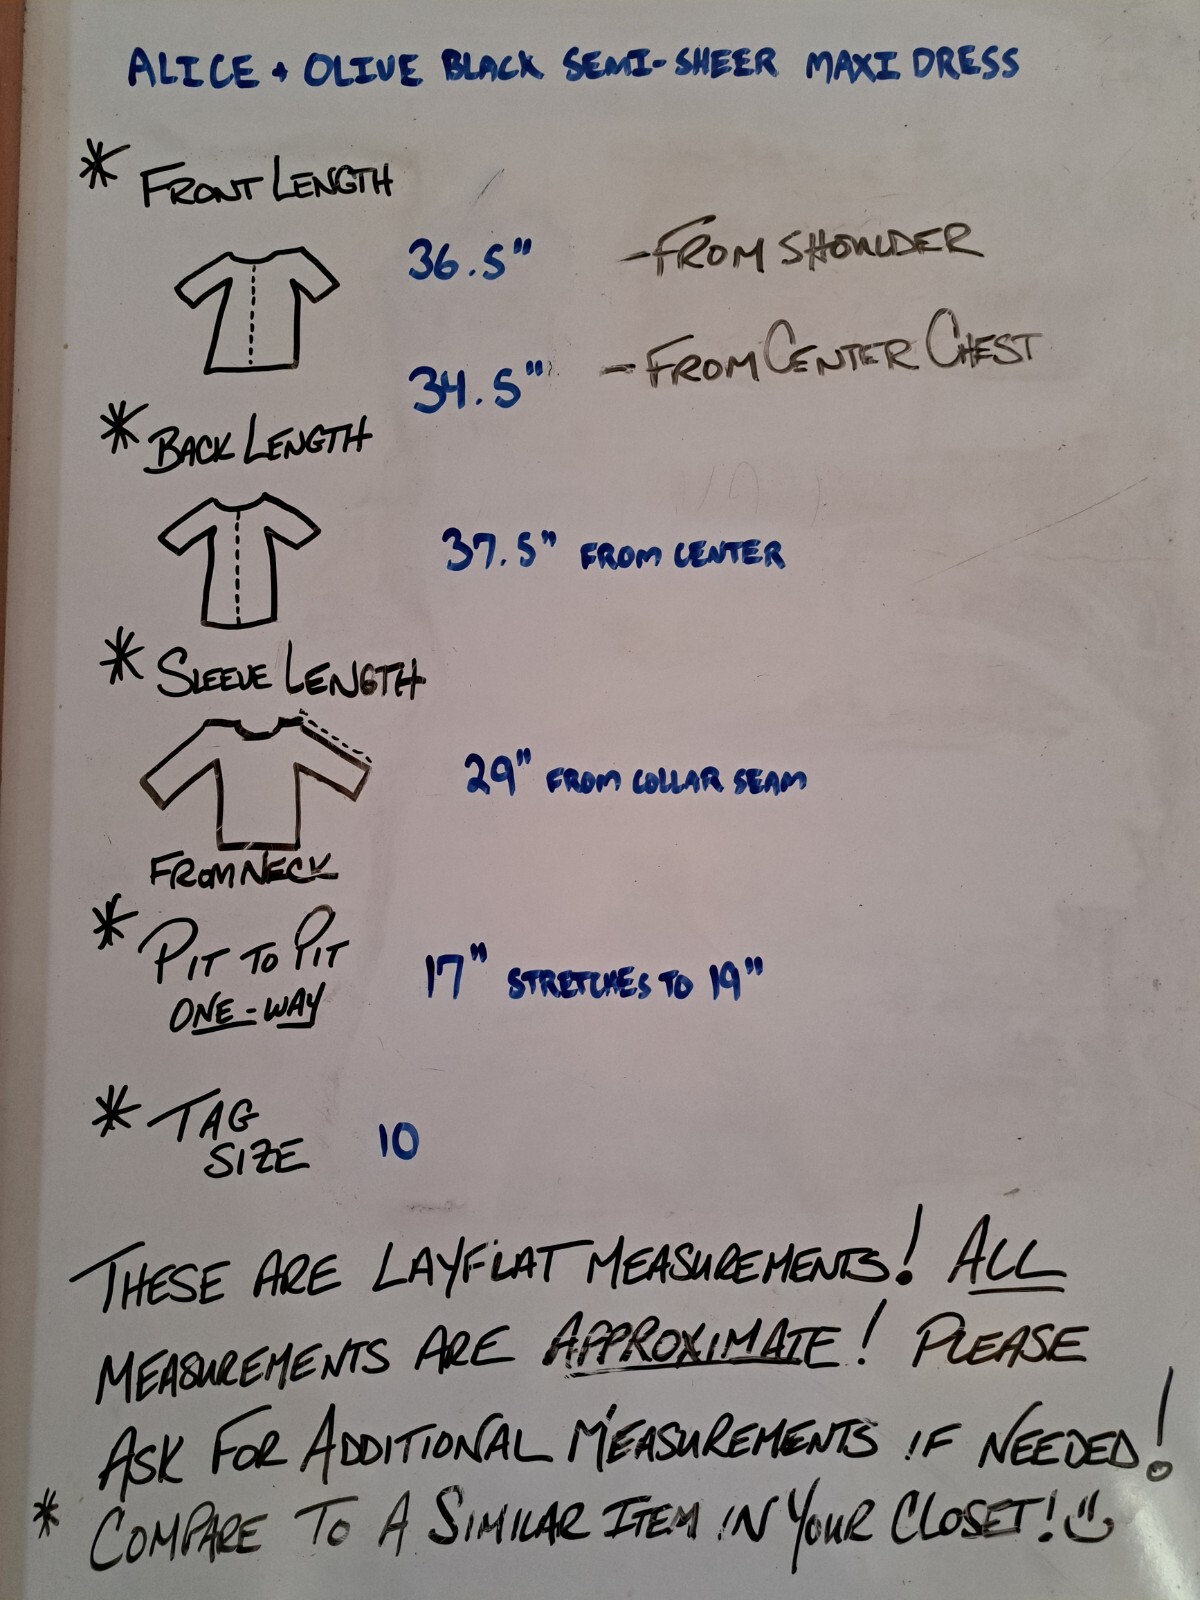 ALICE + OLIVE BLACK SEMI-SHEER MAXI DRESS
* FRONT LENGTH
36.5" - FROM SHOULDER
34.5" - FROM CENTER CHEST
* BACK LENGTH
37.5" FROM CENTER
* SLEEVE LENGTH
29" FROM COLLAR SEAM
FROM NECK
* PIT TO PIT
ONE-WAY
17" STRETCHES TO 19"
* TAG
SIZE 10
THESE ARE LAYFLAT MEASUREMENTS! ALL
MEASUREMENTS ARE APPROXIMATE! PLEASE
ASK FOR ADDITIONAL MEASUREMENTS IF NEEDED!
* COMPARE TO A SIMILAR ITEM IN YOUR CLOSET!